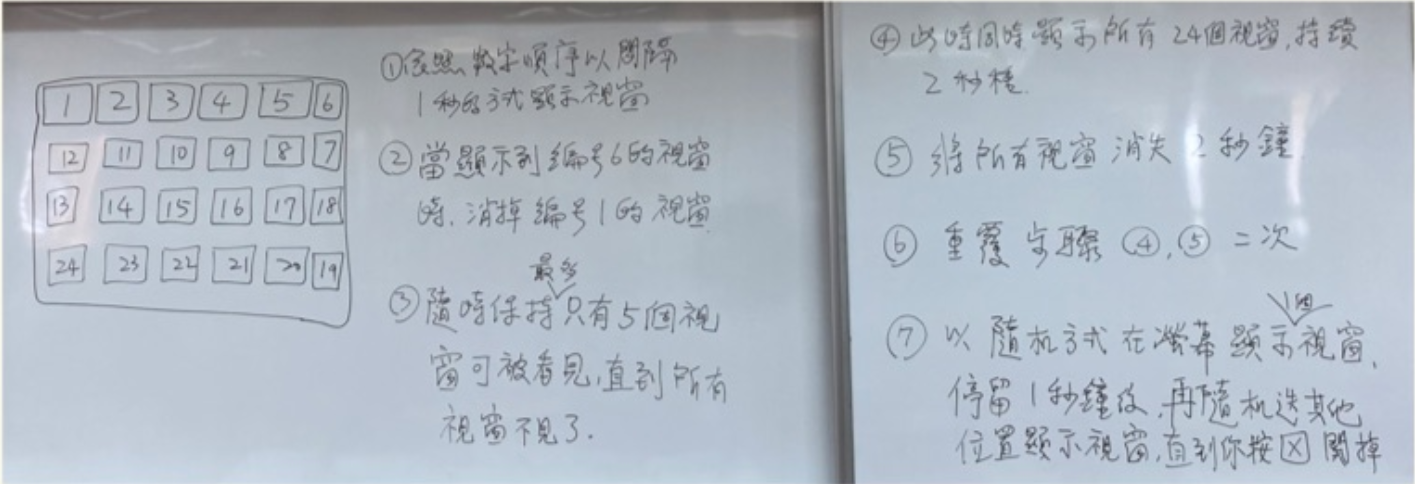 1 2 3 4 5 6
12 11 10 9 8 7
13 14 15 16 17 18
24 23 22 21 20 19
①依照數字順序以間隔
1秒的方式顯示視窗
②當顯示到編号6的視窗
時,消掉編号1的視窗
最多
③隨時保持只有5個視
窗可被看見,直到所有
視窗不見了.
④此時同時顯示所有24個視窗,持續
2秒種.
⑤將所有視窗消失2秒鐘.
⑥重覆步驟④,⑤二次
1個
⑦以隨机方式在螢幕顯示視窗,
停留1秒鐘後,再隨机選其他
位置顯示視窗,直到你按☒關掉